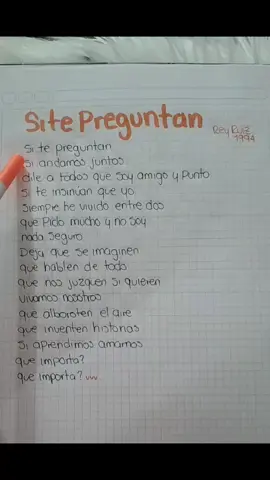 Si te Preguntan
Rey Ruiz
1994
Si te preguntan
Si andamos juntos
dile a todos que soy amigo y punto
Si te insinuan que yo
Siempre he vivido entre dos
que Pido mucho y no soy
nada seguro
Deja que se imaginen
que hablen de todo
que nos juzguen si quieren
vivamos nosotros
que alboroten el aire
que inventen historias
Si aprendimos amarnos
que importa?
que importa?